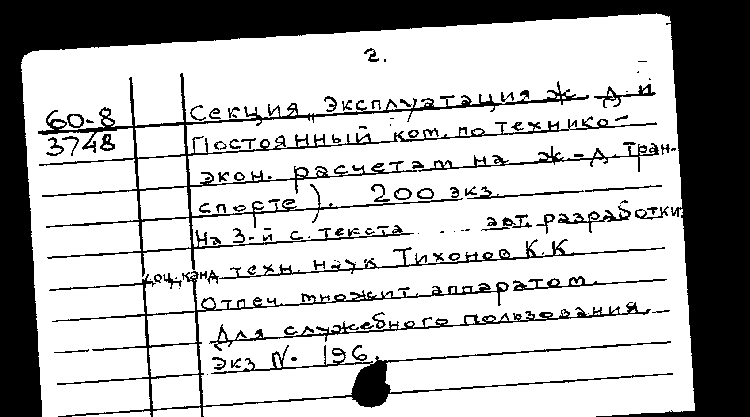 2.
60-8
3748
Секция „Эксплуатация ж. д. и
Постоянный ком. по технико-
экон. расчетам на ж.-д. тран-
спорте). 200 экз.
На 3-й с. текста ... авт. разработки:
доц. канд. техн. наук Тихонов К.К.
Отпеч. множит. аппаратом.
Для служебного пользования.
Экз N. 196.